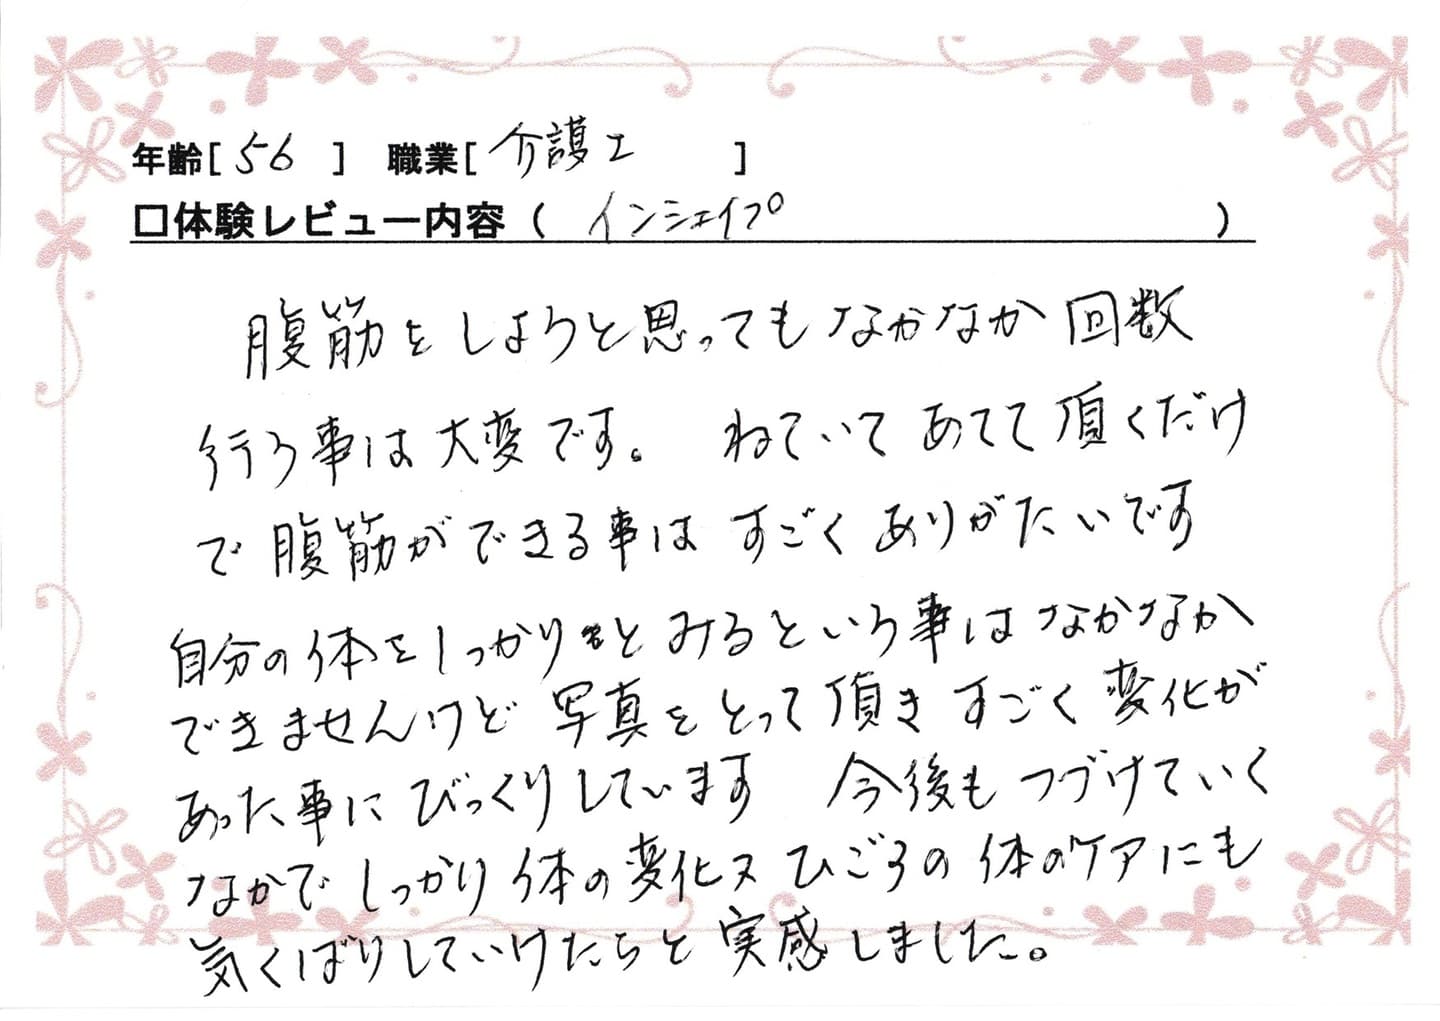 年齢[ 56 ] 職業[ 介護士 ]
□体験レビュー内容 ( インシェイプ )
腹筋をしようと思ってもなかなか回数
行う事は大変です。 ねていて あてて頂くだけ
で腹筋ができる事は すごく ありがたいです
自分の体をしっかりと みるという事は なかなか
できませんけど 写真をとって頂き すごく変化が
あった事にびっくりしています 今後もつづけていく
なかで しっかり体の変化又 ひごろの体のケアにも
気くばりしていけたらと実感しました。